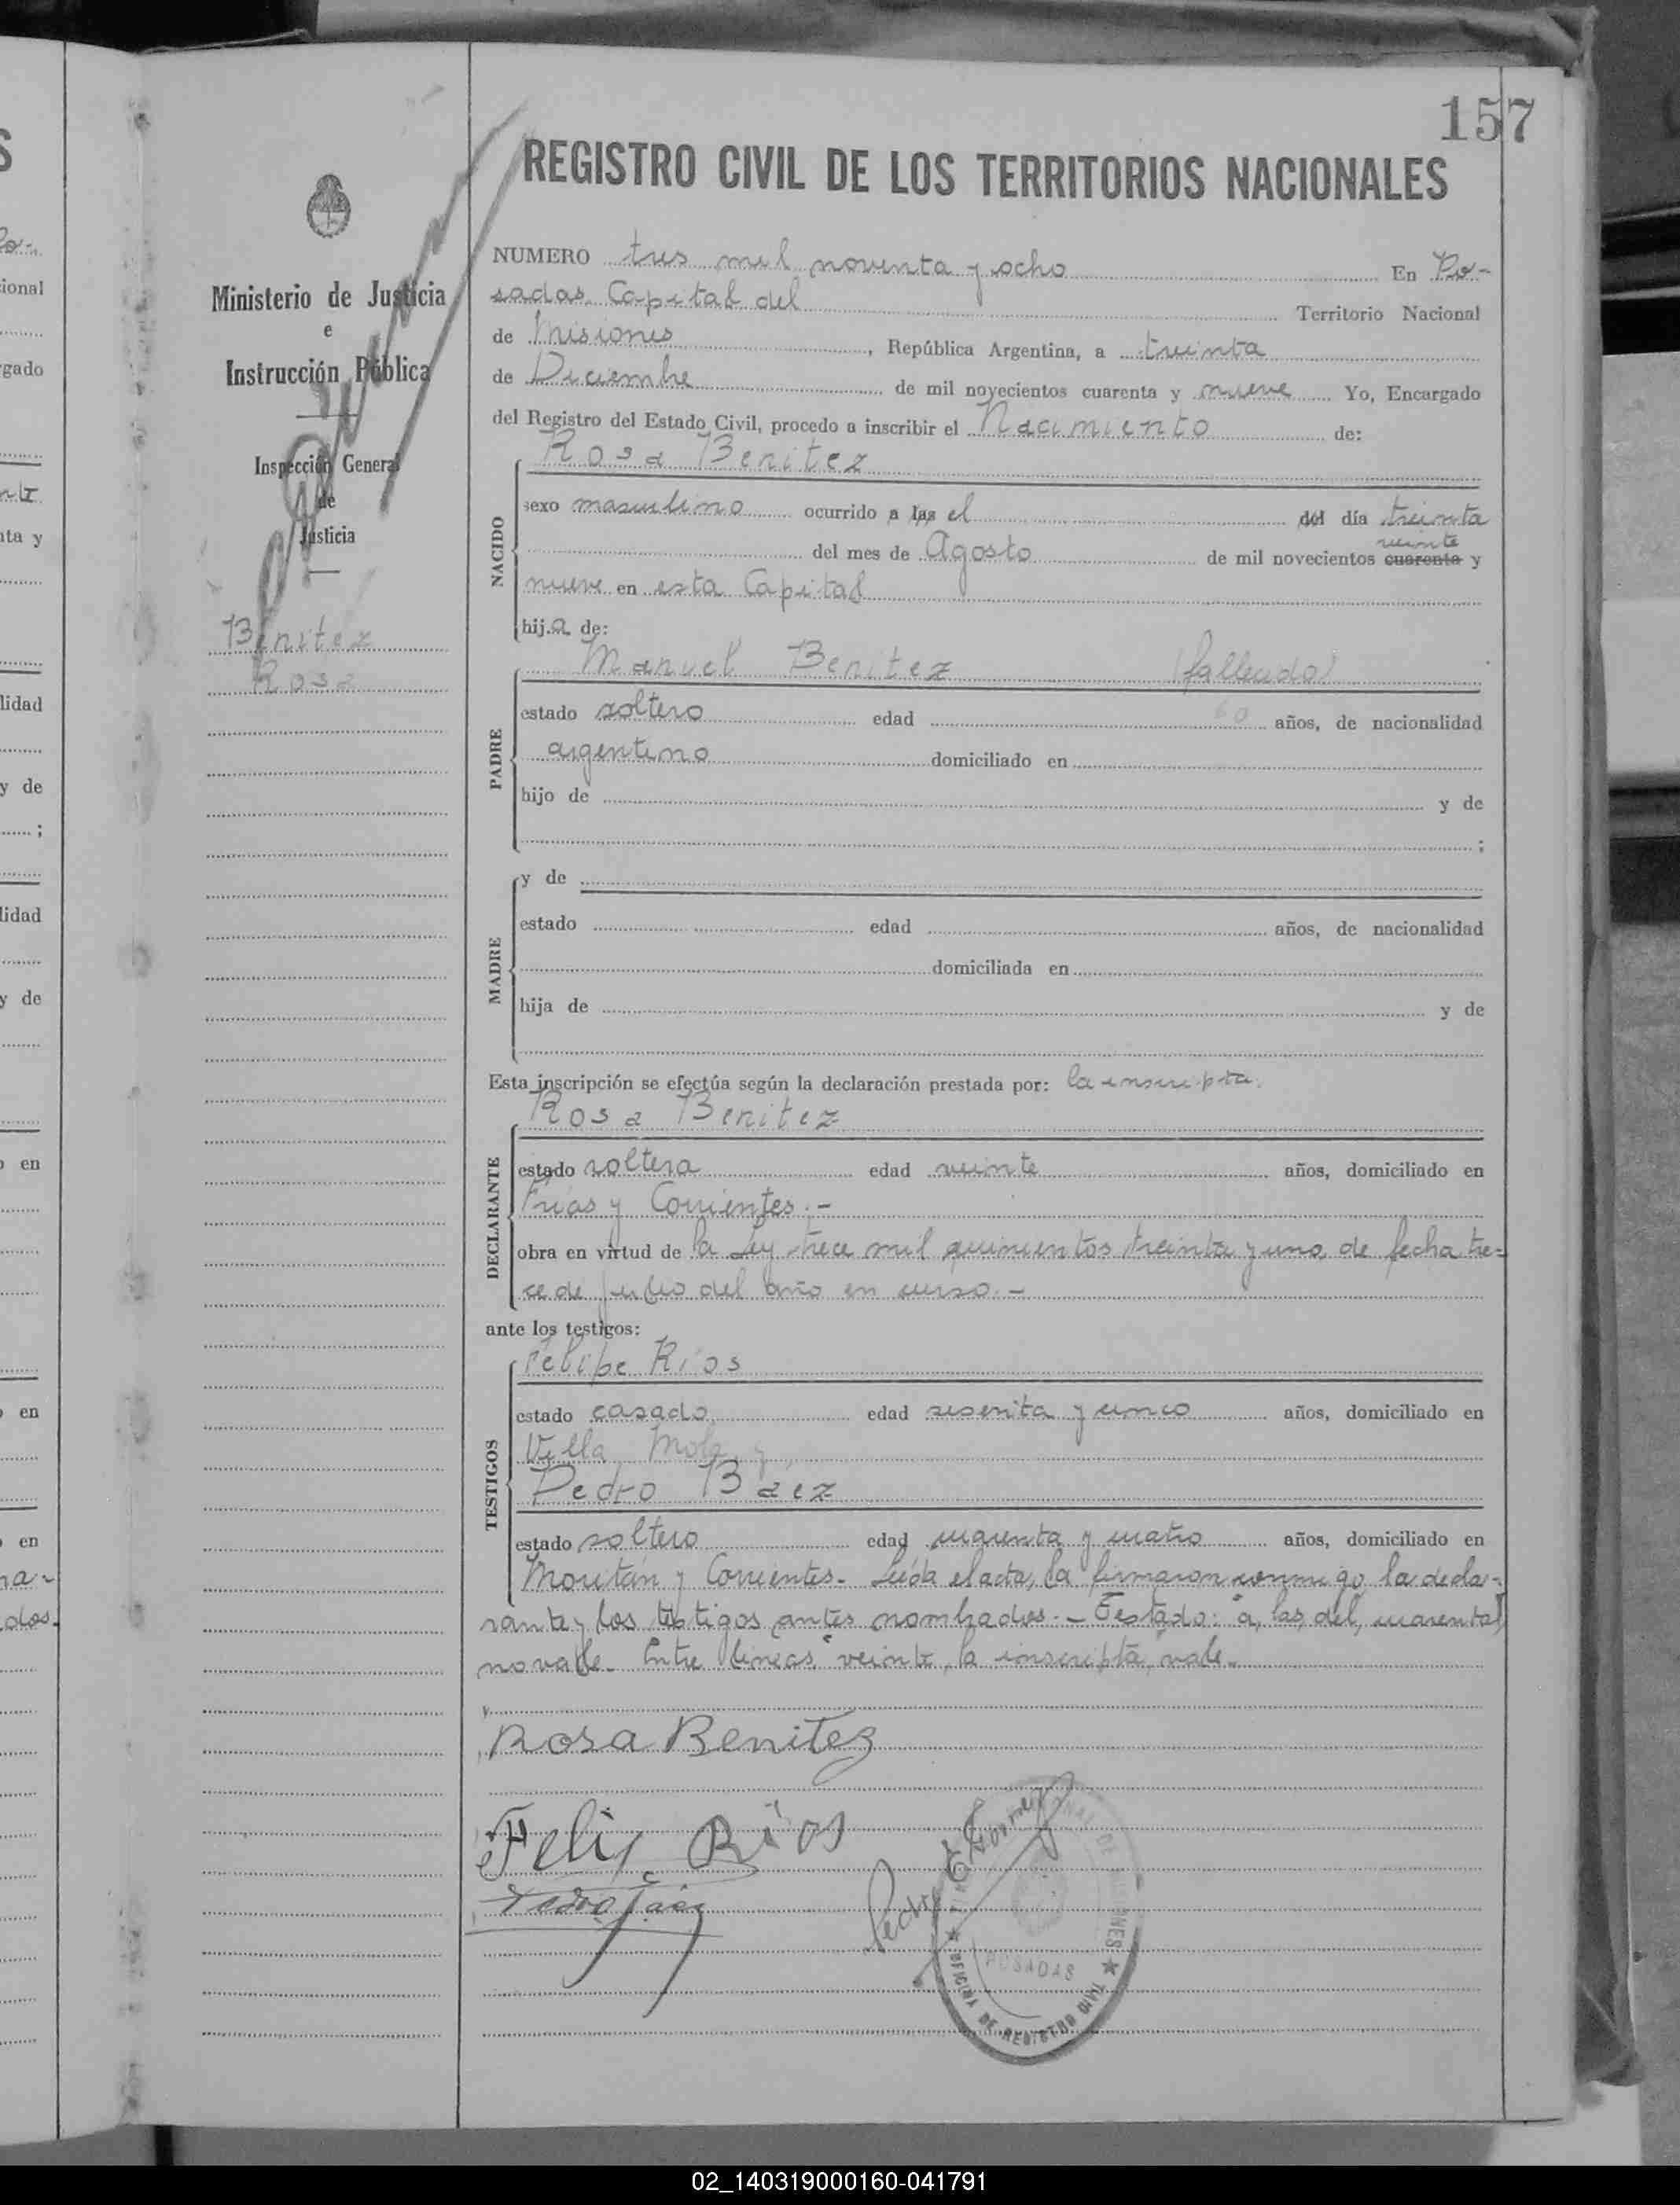 157
REGISTRO CIVIL DE LOS TERRITORIOS NACIONALES
Ministerio de Justicia
e
Instrucción Pública
Inspección General
de
Justicia
Benitez
Rosa
NUMERO tres mil noventa y ocho En Po-
sadas Capital del Territorio Nacional
de Misiones, República Argentina, a treinta
de Diciembre de mil novecientos cuarenta y nueve Yo, Encargado
del Registro del Estado Civil, procedo a inscribir el Nacimiento de:
Rosa Benitez
NACIDO
sexo masculino ocurrido a las el del día treinta
veinte
del mes de Agosto de mil novecientos cuarenta y
nueve en esta Capital
hija de:
Manuel Benitez (fallecido)
PADRE
estado soltero edad 60 años, de nacionalidad
argentino domiciliado en
hijo de y de
;
MADRE
y de
estado edad años, de nacionalidad
domiciliada en
hija de y de
Esta inscripción se efectúa según la declaración prestada por: la inscripta.
Rosa Benitez
DECLARANTE
estado soltera edad veinte años, domiciliado en
Frias y Corrientes.-
obra en virtud de la Ley trece mil quinientos treinta y uno de fecha tre-
ce de Julio del año en curso.-
ante los testigos:
Felipe Rios
TESTIGOS
estado casado edad sesenta y cinco años, domiciliado en
Villa Mola y
Pedro Baez
estado soltero edad cuarenta y cuatro años, domiciliado en
Moritán y Corrientes- Leída el acta, la firmaron conmigo la decla-
rante y los testigos antes nombrados.- Testado: "a, las, del, cuarenta"
no vale- Entre lineas "veinte, la inscripta" vale-
Rosa Benitez
Felix Rios
Pedro Baez
OFICINA DE REGISTRO CIVIL
POSADAS
02_140319000160-041791